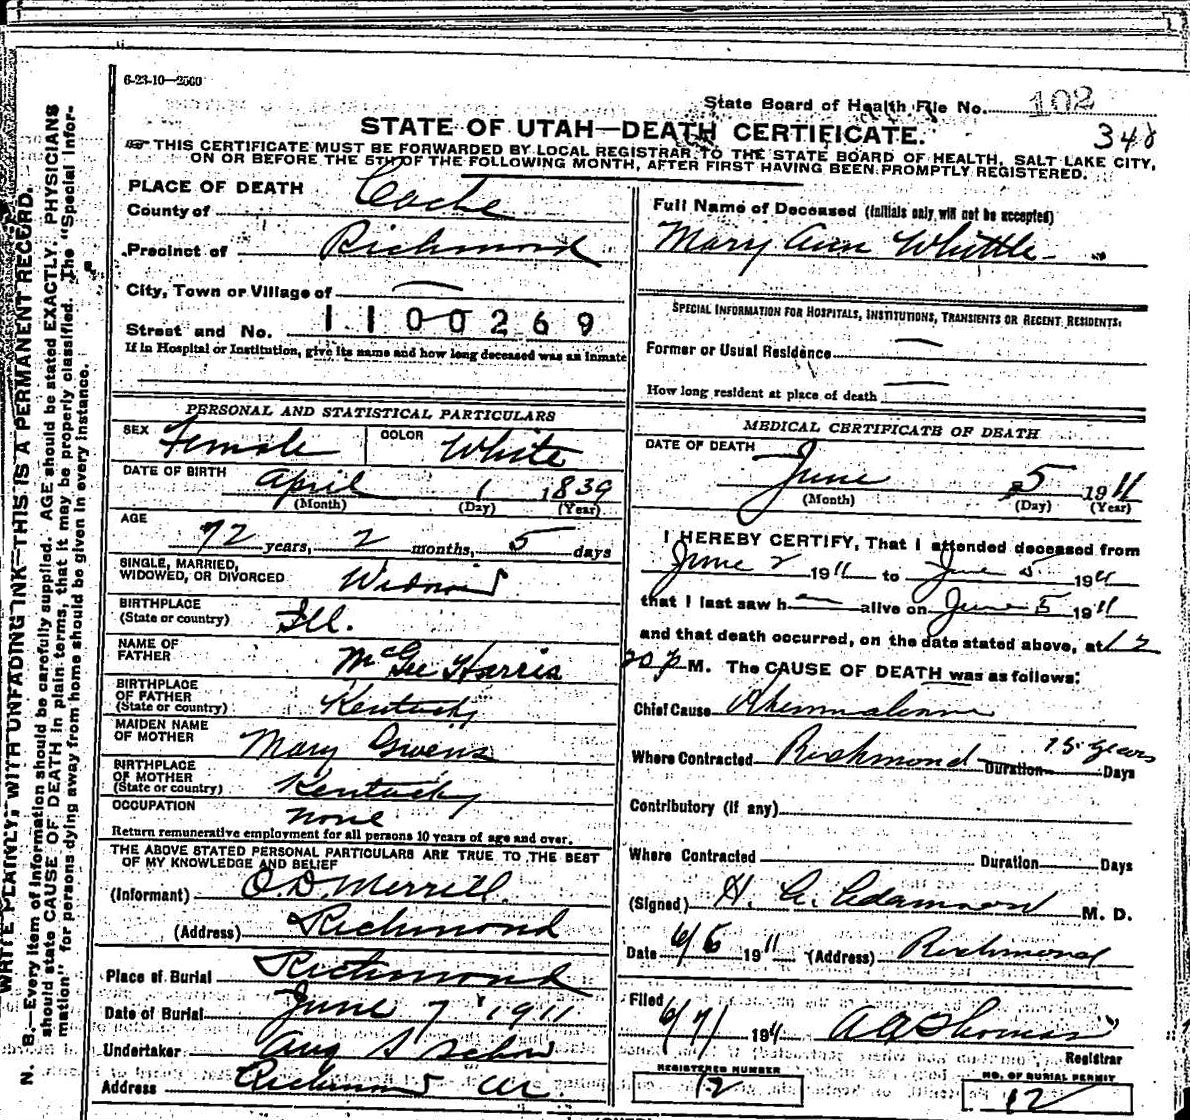 6-23-10—2500
State Board of Health File No. 102
348
STATE OF UTAH—DEATH CERTIFICATE.
THIS CERTIFICATE MUST BE FORWARDED BY LOCAL REGISTRAR TO THE STATE BOARD OF HEALTH, SALT LAKE CITY,
ON OR BEFORE THE 5TH OF THE FOLLOWING MONTH, AFTER FIRST HAVING BEEN PROMPTLY REGISTERED.
WRITE PLAINLY, WITH UNFADING INK—THIS IS A PERMANENT RECORD.
N. B.—Every item of information should be carefully supplied. AGE should be stated EXACTLY. PHYSICIANS
should state CAUSE OF DEATH in plain terms, that it may be properly classified. The "Special Infor-
mation" for persons dying away from home should be given in every instance.
PLACE OF DEATH
County of Cache
Precinct of Richmond
City, Town or Village of —
Street and No. 1100269
If in Hospital or Institution, give its name and how long deceased was an inmate
PERSONAL AND STATISTICAL PARTICULARS
SEX Female COLOR White
DATE OF BIRTH April 1 1839
(Month) (Day) (Year)
AGE
72 years, 2 months, 5 days
SINGLE, MARRIED,
WIDOWED, OR DIVORCED Widow
BIRTHPLACE
(State or country) Ill.
NAME OF
FATHER McGee Harris
BIRTHPLACE
OF FATHER
(State or country) Kentucky
MAIDEN NAME
OF MOTHER Mary Givens
BIRTHPLACE
OF MOTHER
(State or country) Kentucky
OCCUPATION none
Return remunerative employment for all persons 10 years of age and over.
THE ABOVE STATED PERSONAL PARTICULARS ARE TRUE TO THE BEST
OF MY KNOWLEDGE AND BELIEF
(Informant) O. D. Merrill
(Address) Richmond
Place of Burial Richmond
Date of Burial June 7 1911
Undertaker Aug S
Address Richmond
Full Name of Deceased (Initials only will not be accepted)
Mary Ann Whittle
SPECIAL INFORMATION FOR HOSPITALS, INSTITUTIONS, TRANSIENTS OR RECENT RESIDENTS:
Former or Usual Residence —
How long resident at place of death —
MEDICAL CERTIFICATE OF DEATH
DATE OF DEATH June 5 1911
(Month) (Day) (Year)
I HEREBY CERTIFY, That I attended deceased from
June 2 1911 to June 5 1911
that I last saw h— alive on June 5 1911
and that death occurred, on the date stated above, at 12
20 p M. The CAUSE OF DEATH was as follows:
Chief Cause
Where Contracted Richmond Duration 15 years Days
Contributory (if any)
Where Contracted Duration Days
(Signed) H. G. Adamson M. D.
Date 6/6 1911 (Address) Richmond
Filed
6/7/ 1911 A A Thomas
Registrar
REGISTERED NUMBER
12
NO. OF BURIAL PERMIT
12